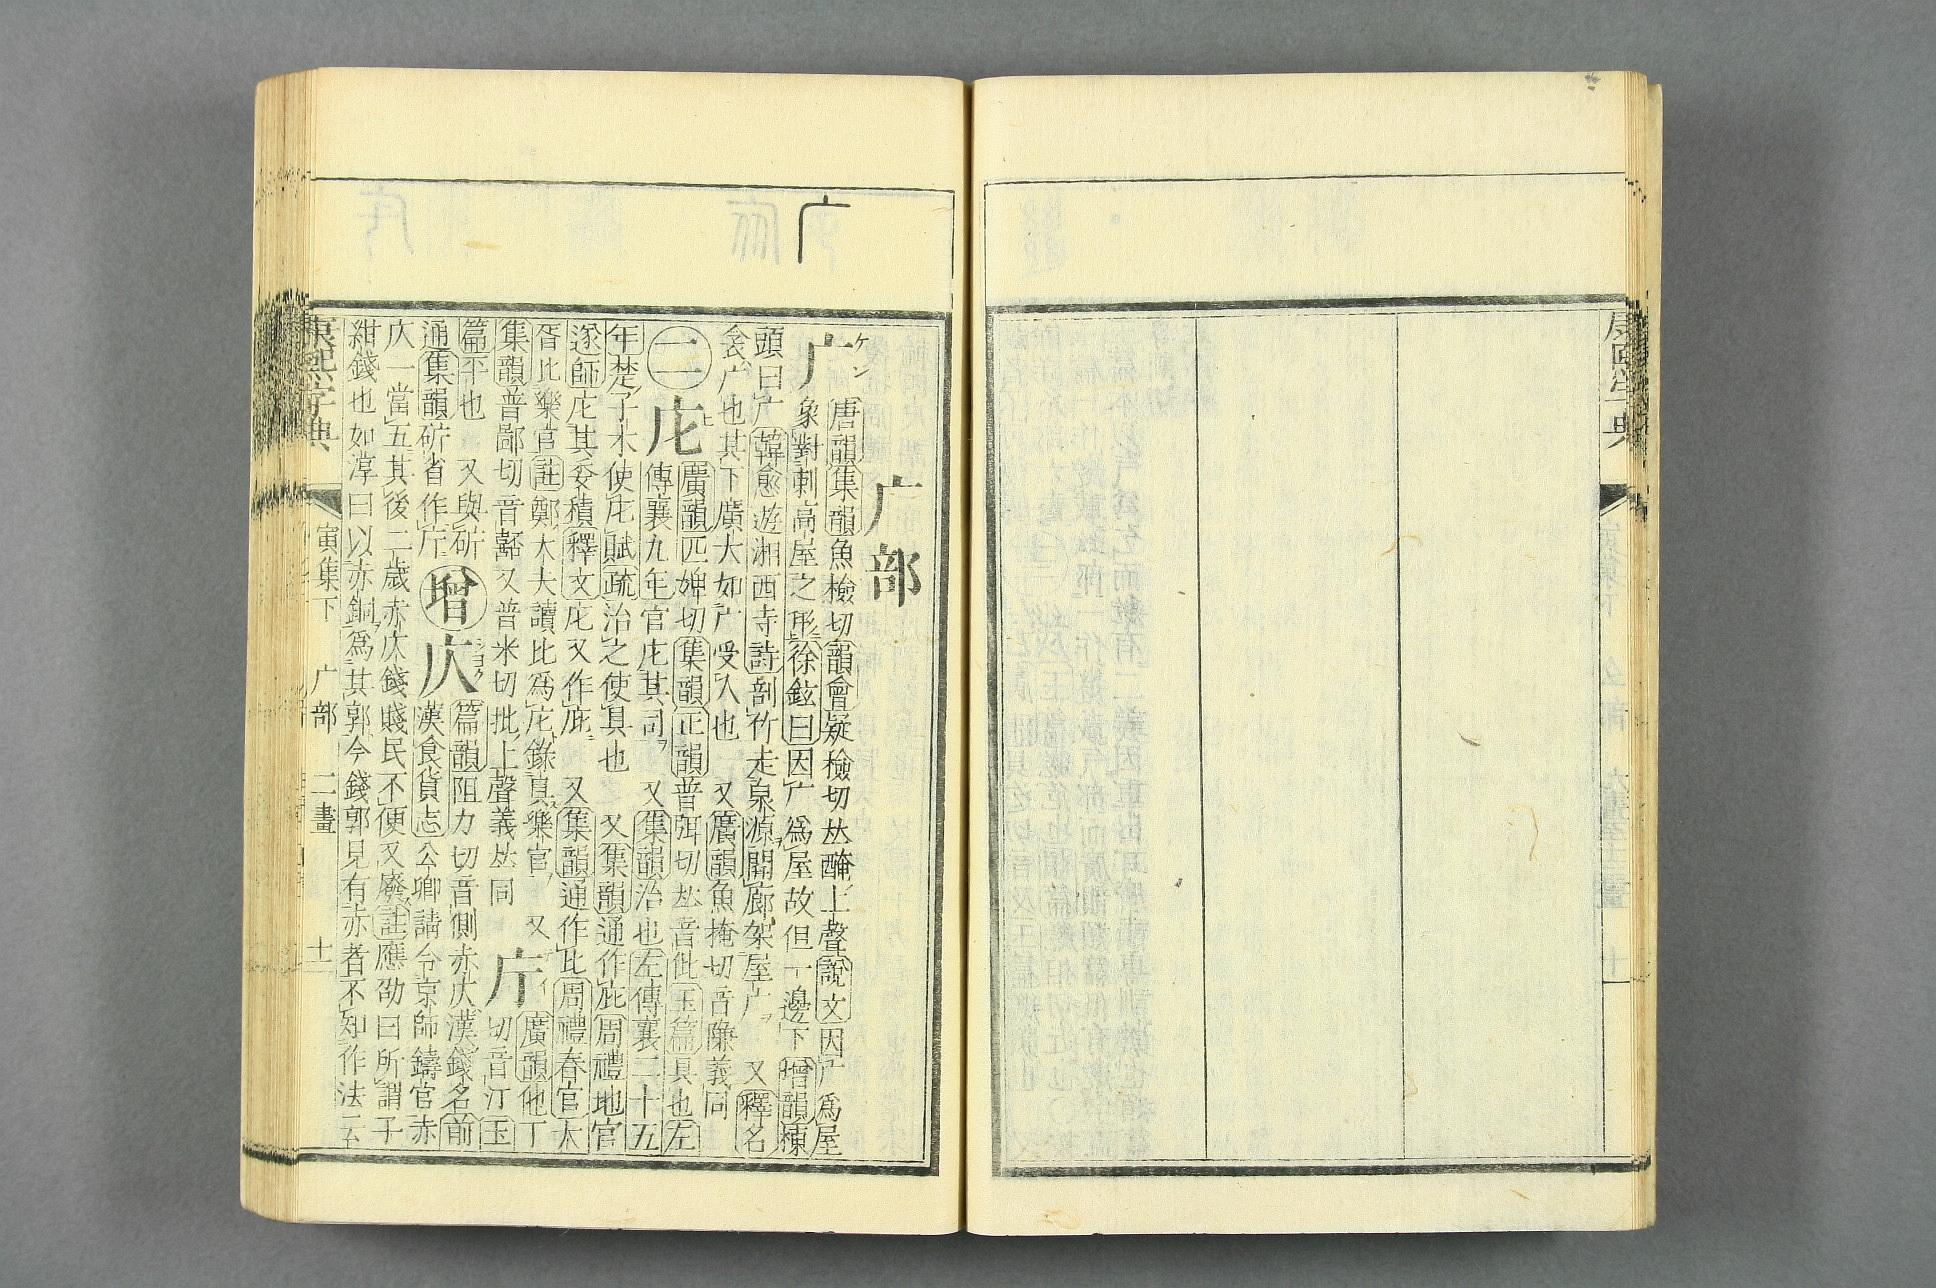 康熙字典
广
广部
广 ケン 唐韻集韻魚檢切韻會疑檢切𠀤醃上聲說文因厂爲屋
象對刺高屋之形徐鉉曰因广爲屋故但一邊下增韻棟
頭曰广韓愈遊湘西寺詩剖竹走泉源開廊架屋广 又釋名
衾广也其下廣大如广受人也 又廣韻魚掩切音隒義同
二 庀 ヒ 廣韻匹婢切集韻正韻普弭切𠀤音仳玉篇具也左
傳襄九年官庀其司 又集韻治也左傳襄二十五
年楚子木使庀賦疏治之使具也 又集韻通作庇周禮地官
遂師庀其委積釋文庀又作庇 又集韻通作比周禮春官大
胥比樂官註鄭大夫讀比爲庀錄具樂官 又
集韻普鄙切音嚭又普米切批上聲義𠀤同
庁 テイ 廣韻他丁
切音汀玉
篇平也 又與斫
通集韻斫省作庁
增 庂 ショク 篇韻阻力切音側赤庂漢錢名前
漢食貨志公卿請令京師鑄官赤
庂一當五其後二歲赤庂錢賤民不便又廢註應劭曰所謂子
紺錢也如淳曰以赤銅爲其郭今錢郭見有赤者不知作法云
康熙字典 寅集下 广部 二畫 十一